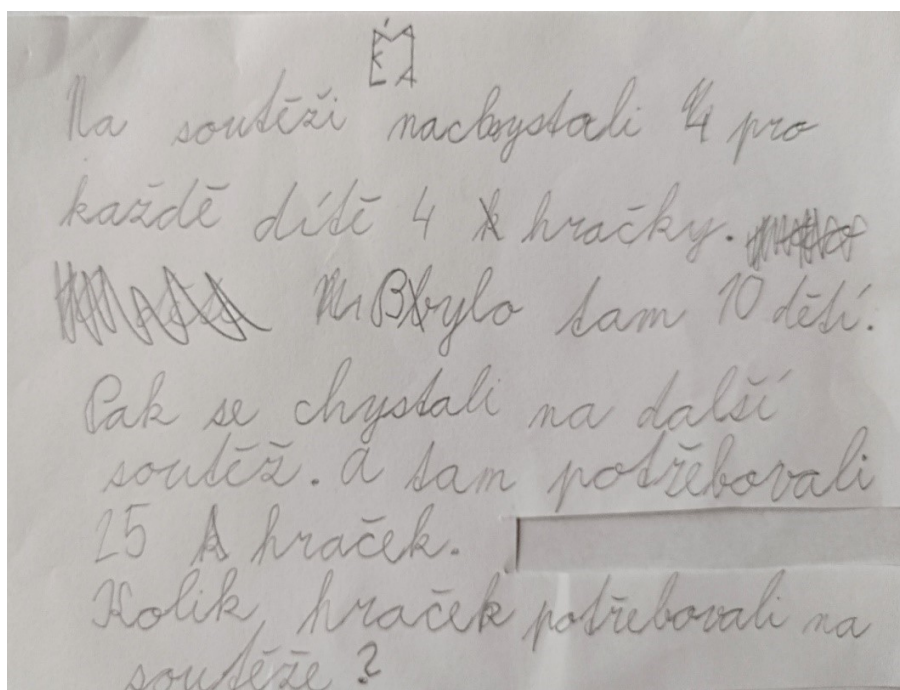 Na soutěži nachystali 4 pro
každé dítě 4 hračky.
Bylo tam 10 dětí.
Pak se chystali na další
soutěž. a tam potřebovali
25 hraček.
Kolik hraček potřebovali na
soutěže?